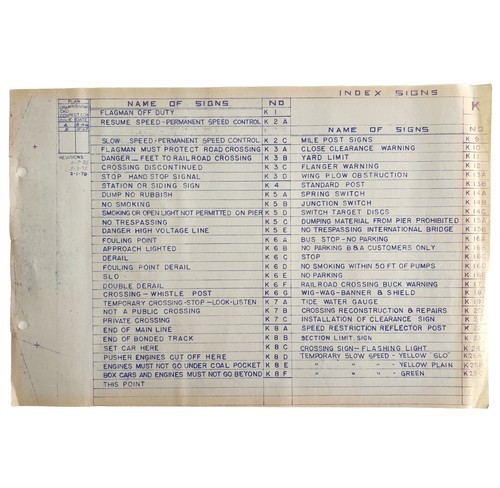 INDEX SIGNS
PLAN
NAME OF SIGNS NO
K
FLAGMAN OFF DUTY K 1
RESUME SPEED-PERMANENT SPEED CONTROL K 2 A
SLOW SPEED-PERMANENT SPEED CONTROL K 2 C
FLAGMAN MUST PROTECT ROAD CROSSING K 3 A
DANGER __ FEET TO RAILROAD CROSSING K 3 B
CROSSING DISCONTINUED K 3 C
STOP HAND STOP SIGNAL K 3 D
STATION OR SIDING SIGN K 4
DUMP NO RUBBISH K 5 A
NO SMOKING K 5 B
SMOKING OR OPEN LIGHT NOT PERMITTED ON PIER K 5 D
NO TRESPASSING K 5 C
DANGER HIGH VOLTAGE LINE K 5 E
FOULING POINT K 6 A
APPROACH LIGHTED K 6 B
DERAIL K 6 C
FOULING POINT DERAIL K 6 D
SLO K 6 E
DOUBLE DERAIL K 6 F
CROSSING - WHISTLE POST K 6 G
TEMPORARY CROSSING-STOP-LOOK-LISTEN K 7 A
NOT A PUBLIC CROSSING K 7 B
PRIVATE CROSSING K 7 C
END OF MAIN LINE K 8 A
END OF BONDED TRACK K 8 B
SET CAR HERE K 8 C
PUSHER ENGINES CUT OFF HERE K 8 D
ENGINES MUST NOT GO UNDER COAL POCKET K 8 E
BOX CARS AND ENGINES MUST NOT GO BEYOND K 8 F
THIS POINT
NAME OF SIGNS NO
MILE POST SIGNS K 9
CLOSE CLEARANCE WARNING K 10
YARD LIMIT K 11
FLANGER WARNING K 12
WING PLOW OBSTRUCTION K 13 A
STANDARD POST
SPRING SWITCH K 14 A
JUNCTION SWITCH K 14 B
SWITCH TARGET DISCS
DUMPING MATERIAL FROM PIER PROHIBITED K 15 A
NO TRESPASSING INTERNATIONAL BRIDGE
BUS STOP-NO PARKING K 16 A
NO PARKING B&A CUSTOMERS ONLY K 16 B
STOP K 16 C
NO SMOKING WITHIN 50 FT OF PUMPS K 16 D
NO PARKING K 16 E
RAILROAD CROSSING BUCK WARNING K 17
WIG-WAG-BANNER & SHIELD K 18
TIDE WATER GAUGE K 19
CROSSING RECONSTRUCTION & REPAIRS K 20
INSTALLATION OF CLEARANCE SIGN K 21
SPEED RESTRICTION REFLECTOR POST K
SECTION LIMIT SIGN K
CROSSING SIGN-FLASHING LIGHT K
TEMPORARY SLOW SPEED - YELLOW "SLO"
" " " YELLOW PLAIN
" " " GREEN
REVISIONS
2-1-78